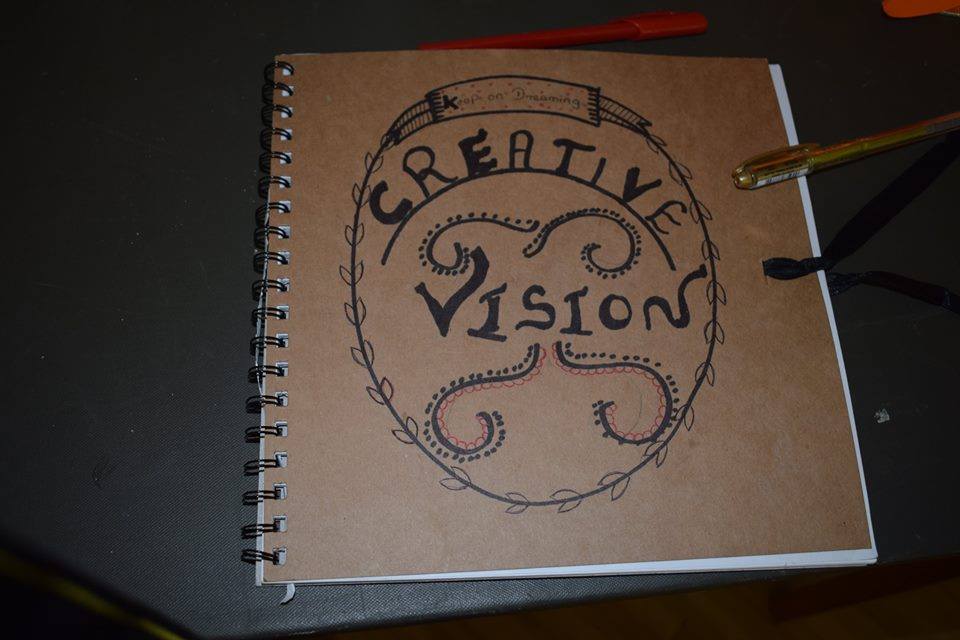 Keep on Dreaming
CREATIVE
VISION